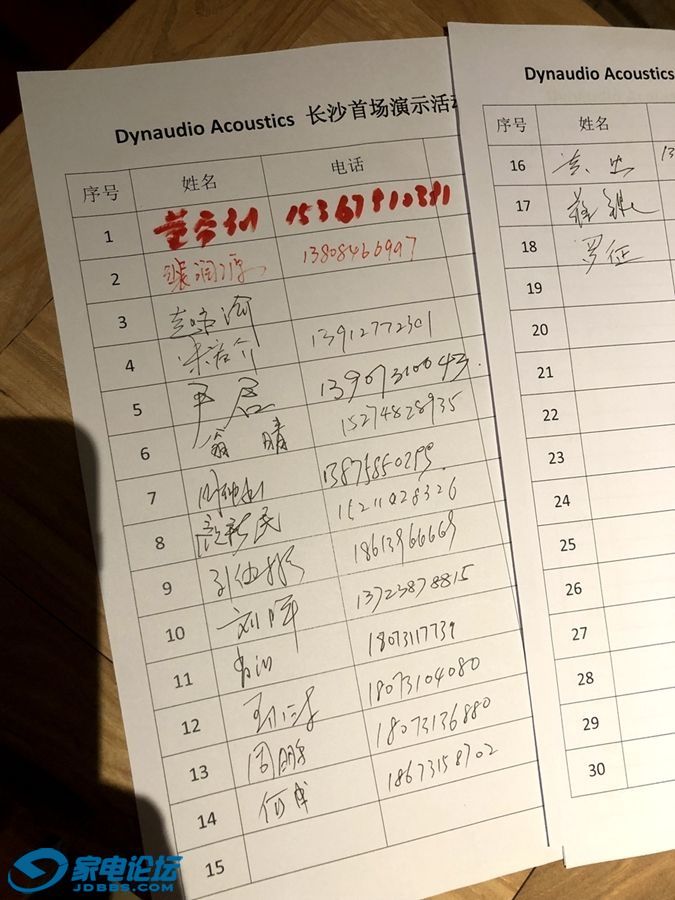 Dynaudio Acoustics 长沙首场演示活动
序号 姓名 电话
1 15367910391
2 13808466997
3
4 13912772301
5 尹启 13907310043.
6 翁晴 15274828935
7 13875850259
8 颜新民 15211028326
9 18613966669
10 刘晖 13723878815
11 18073117739
12 18073104080
13 周鹏 18073136880
14 何成 18673158702
15
Dynaudio Acoustics
序号 姓名
16
17
18 罗征
19
20
21
22
23
24
25
26
27
28
29
30
家电论坛
JDBBS.COM